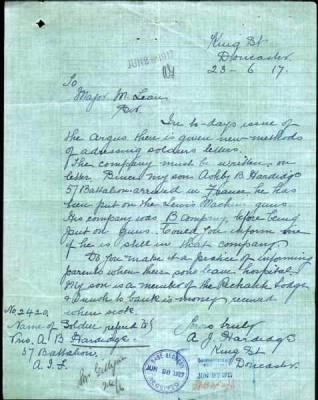 JUN 25 1917
King St
Doncaster
23 - 6 17.
To
Major M. Lean
Sir
In to-days issue of
the Argus there is given new methods
of adressing soldiers letters.
The company must be written on
letter. Since my son Ashby B Hardidge
57 Battalion arrived in France, he has
been put on the Lewis Machin guns.
His company was B Company, before being
put on guns. Could you inform me
if he is still in that company
Do you make it a practice of informing
parents when there sons leave hospital
My son is a member of the Rechabite Lodge
& I wish to bank is money received
when sick.
No 2420
Name of Soldier
Priv. A B Hardidge
57 Battalion.
A.I.F.
Yours truly
A J. Hardidge
King St
Doncaster.
BASE RECORDS
JUN 26 1917
RECEIVED